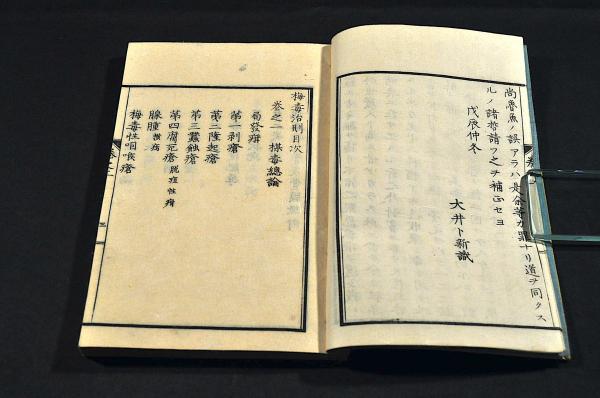 尚魯魚ノ誤アラハ是余等カ罪ナリ道ヲ同クス
ルノ諸哲請フ之ヲ補正セヨ
戊辰仲冬
大井卜新識
梅毒治則目次
巻之一 楳毒總論
局發病
第一剥瘡
第二隆起瘡
第三蚕蝕瘡
第四腐疕瘡 脱疽性瘡
腺腫 横痃
梅毒性咽喉瘡